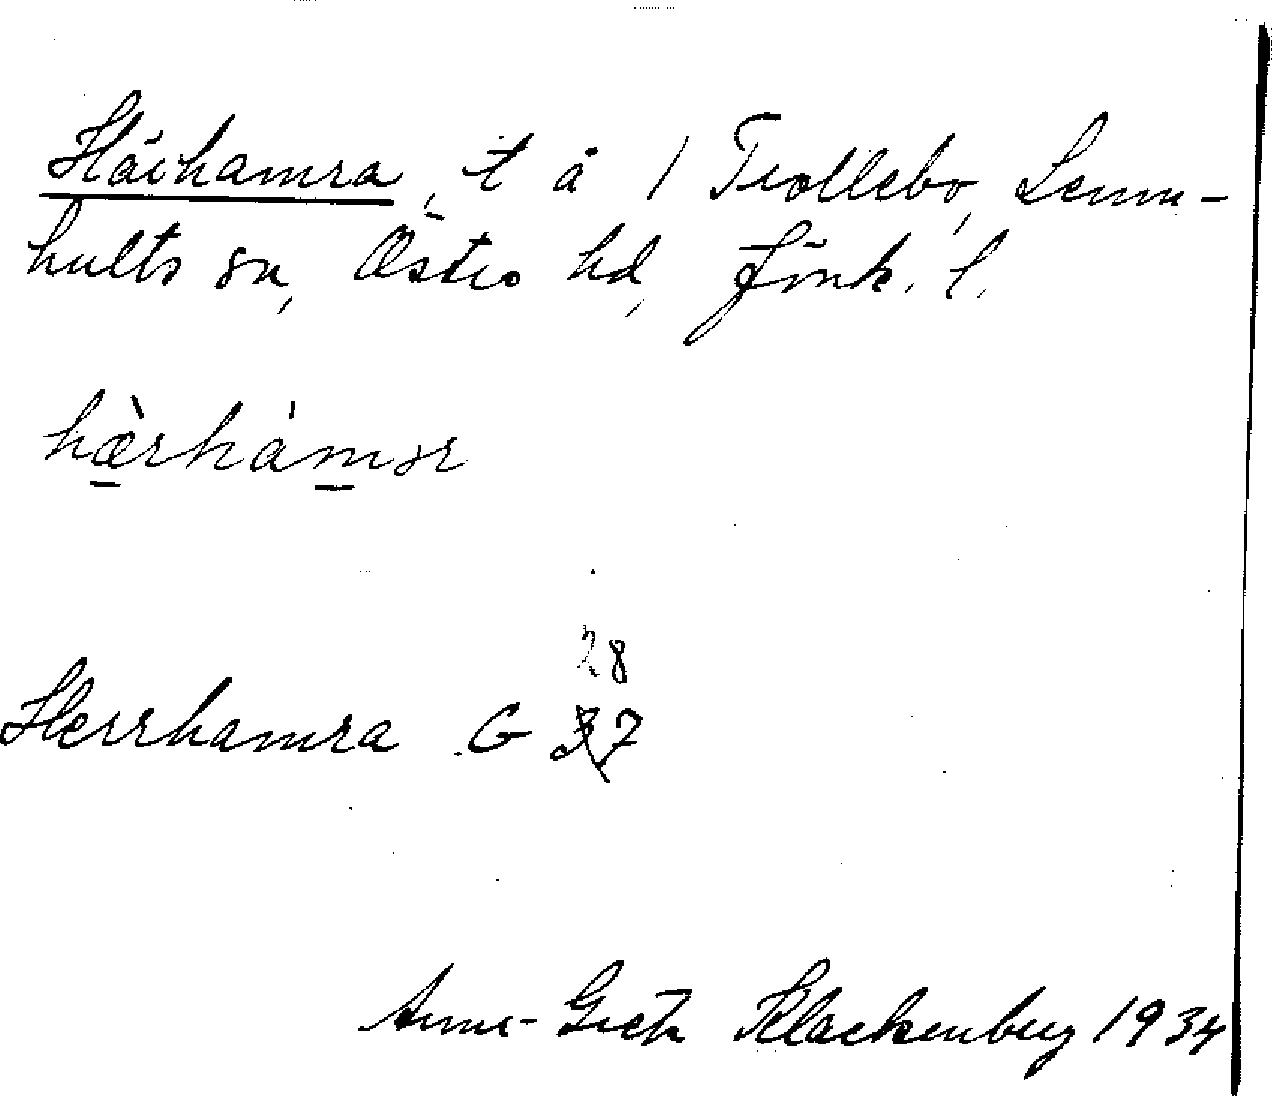 Härhamra, t å 1 Trollebo, Lemn-
hults sn, Östra hd, Jönk. l.
hæ̀rhámər
28
Herrhamra G 37
Anna-Greta Klackenberg 1934